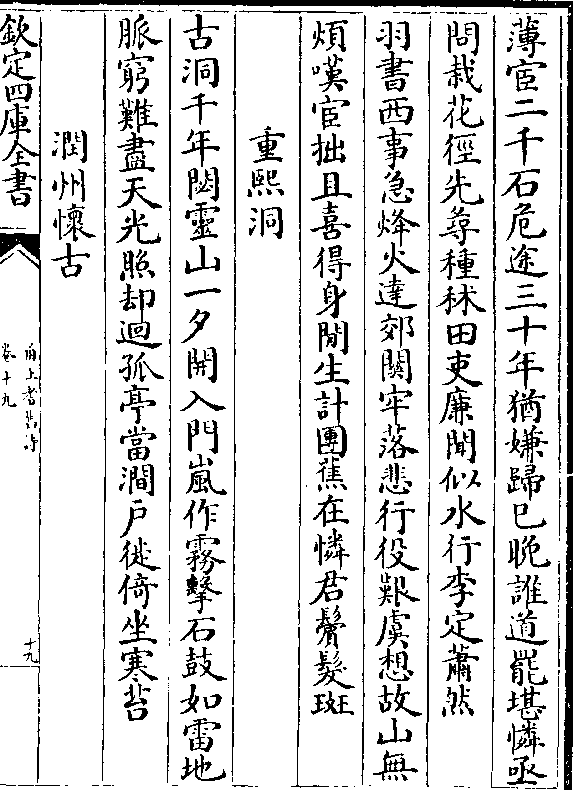 薄宦二千石危途三十年猶嫌歸已晚誰道罷堪憐亟
問栽花徑先尊種秫田吏廉聞似水行李定蕭然
羽書西事急烽火達郊關牢落悲行役艱虞想故山無
煩嘆宦拙且喜得身閒生計團蕉在憐君鬢髮斑
重熙洞
古洞千年閟靈山一夕開入門嵐作霧擊石鼓如雷地
脈窮難盡天光照却迴孤亭當澗戶徙倚坐寒苔
潤州懷古
欽定四庫全書
甬上耆舊詩
卷十九
十九